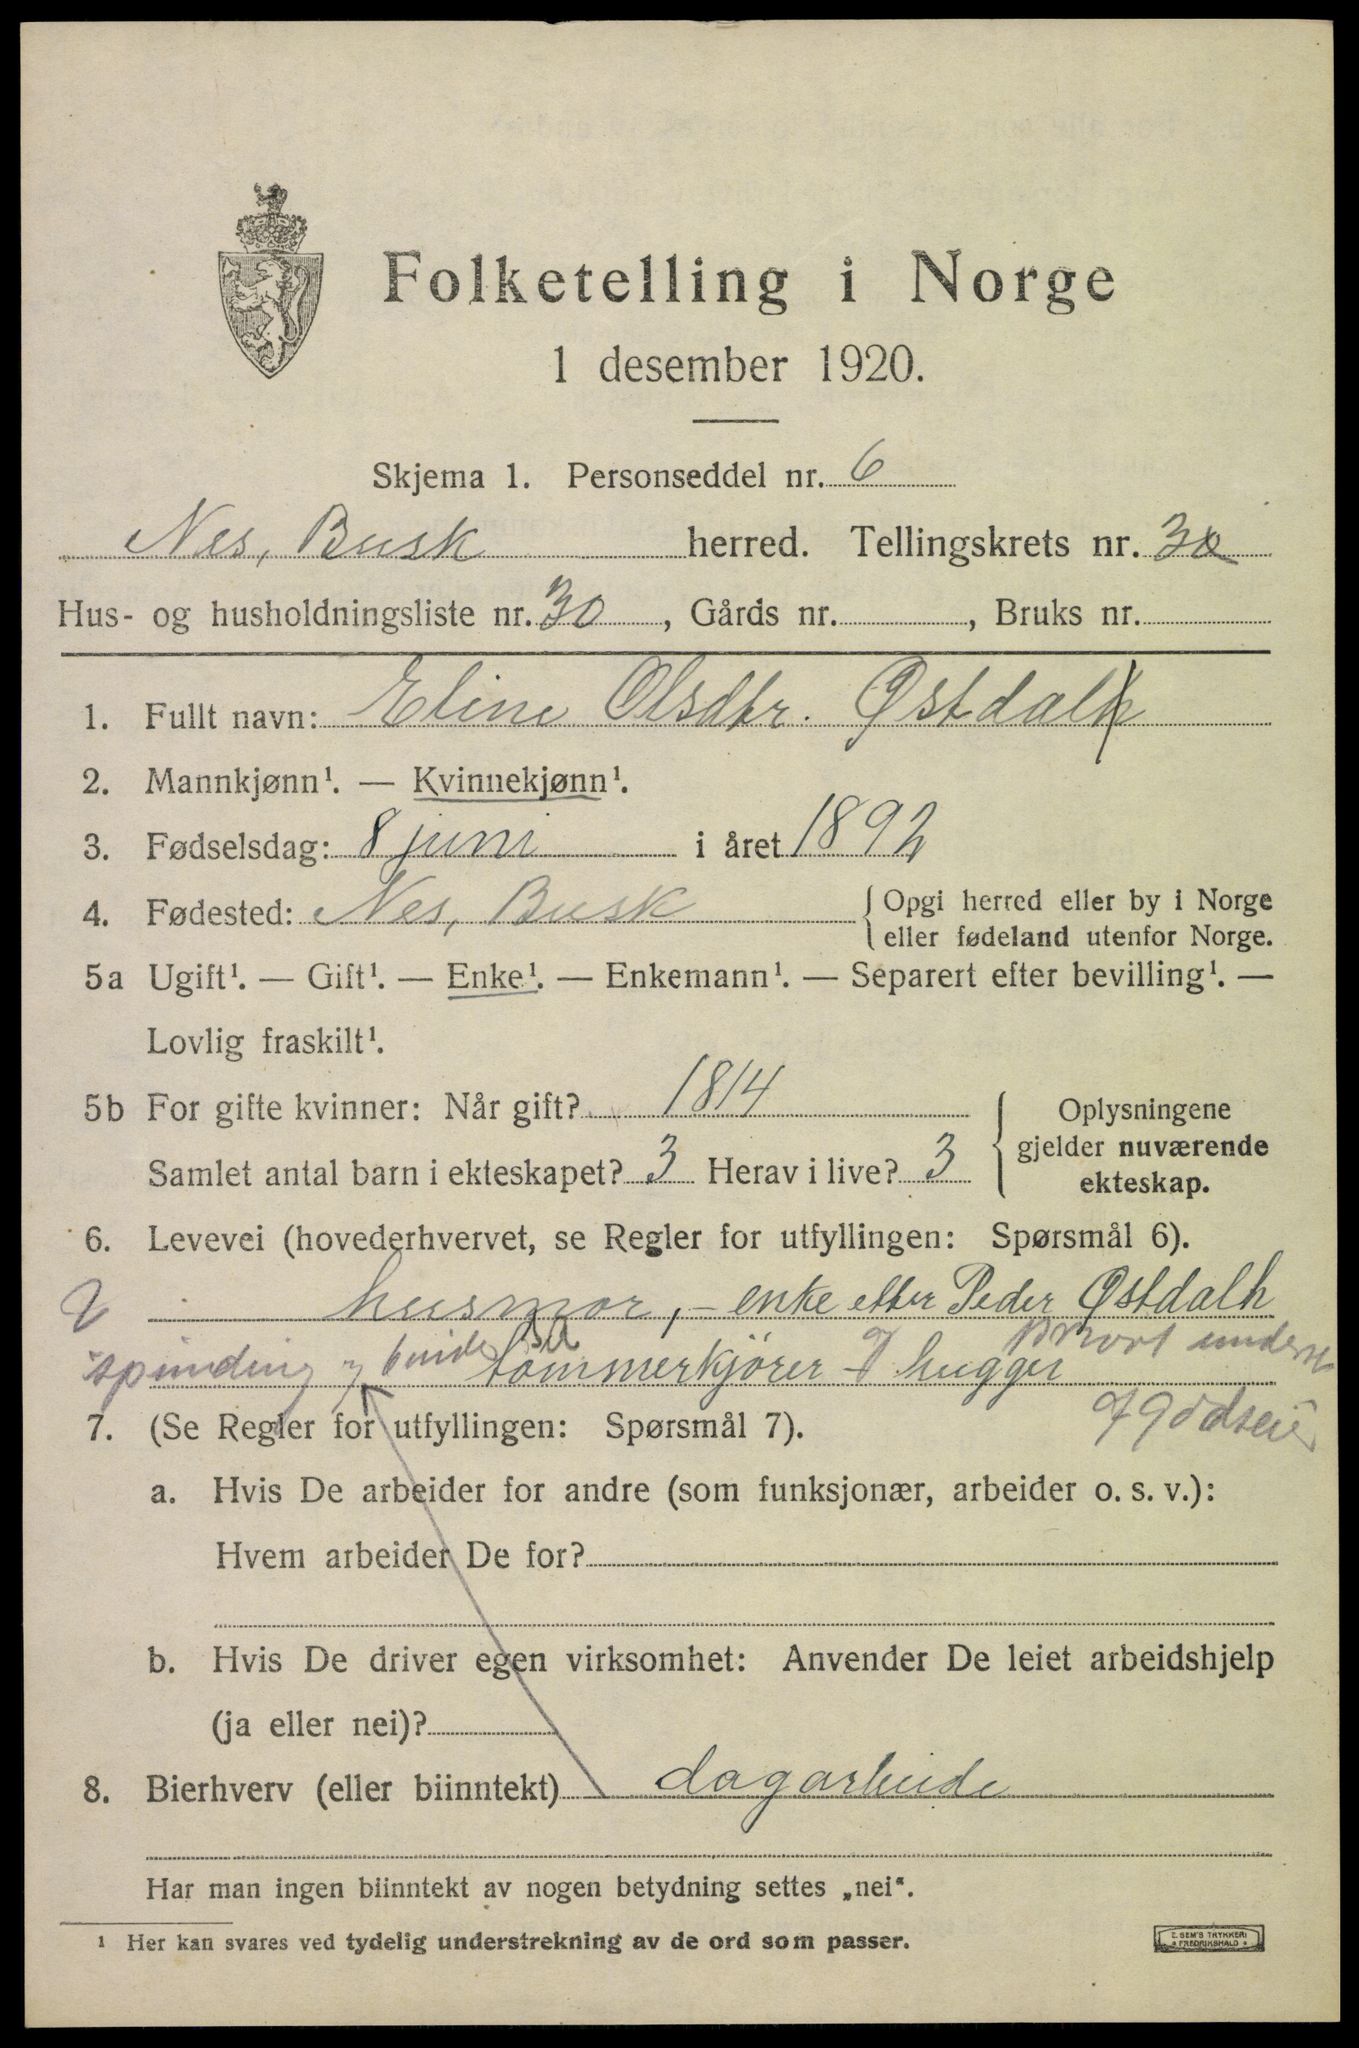 Folketelling i Norge
1 desember 1920.
Skjema 1. Personseddel nr. 6
Nes, Busk herred. Tellingskrets nr. 3
Hus- og husholdningsliste nr. 30, Gårds nr. , Bruks nr.
1. Fullt navn: Eline Olsdtr. Østdalh
2. Mannkjønn¹. — Kvinnekjønn¹.
3. Fødselsdag: 8 juni i året 1892
4. Fødested: Nes, Busk { Opgi herred eller by i Norge
eller fødeland utenfor Norge.
5a Ugift¹. — Gift¹. — Enke¹. — Enkemann¹. — Separert efter bevilling¹. —
Lovlig fraskilt¹.
5b For gifte kvinner: Når gift? 1814
Samlet antal barn i ekteskapet? 3 Herav i live? 3
Oplysningene
gjelder nuværende
ekteskap.
6. Levevei (hovederhvervet, se Regler for utfyllingen: Spørsmål 6).
husmor, - enke etter Peder Østdalh
spinding og tømmerkjører & hugger
7. (Se Regler for utfyllingen: Spørsmål 7).
a. Hvis De arbeider for andre (som funksjonær, arbeider o. s. v.):
Hvem arbeider De for?
b. Hvis De driver egen virksomhet: Anvender De leiet arbeidshjelp
(ja eller nei)?
8. Bierhverv (eller biinntekt) dagarbeide
Har man ingen biinntekt av nogen betydning settes „nei“.
¹ Her kan svares ved tydelig understrekning av de ord som passer.
E. SEM'S TRYKKERI
FREDRIKSHALD